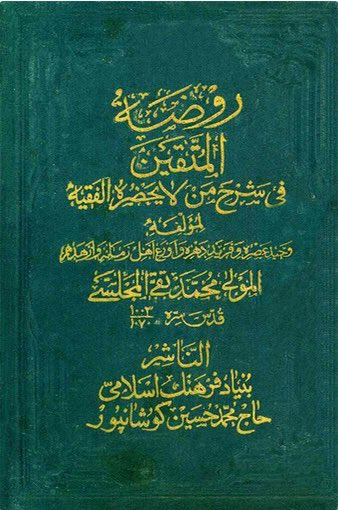 روضة
المتقين
في شرح من لا يحضره الفقيه
لمؤلفه
وحيد عصره وفريد دهره وأورع أهل زمانه وأزهدهم
المولى محمد تقي المجلسي
قدس سره ١٠٠٣
١٠٧٠
الناشر
بنیاد فرهنك اسلامی
حاج محمد حسین کوشانپور